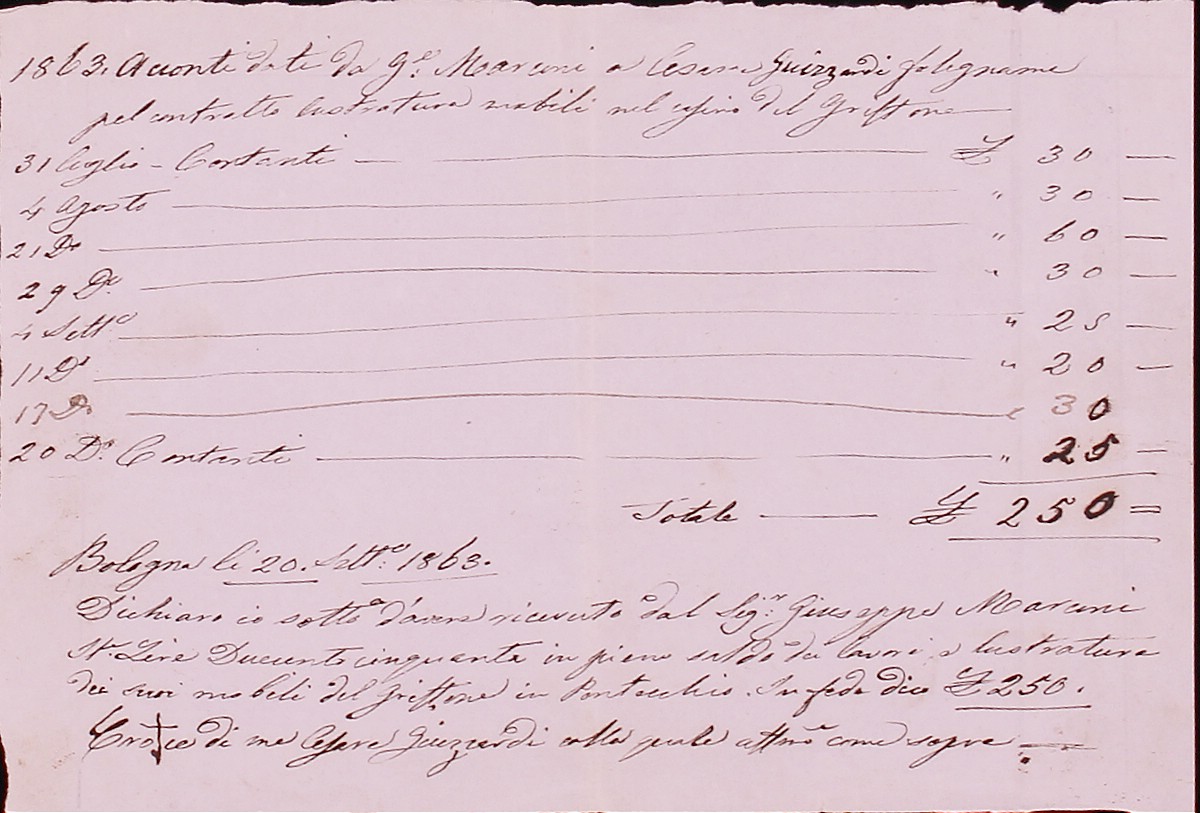 1863. Acconti dati da G.e Marconi a Cesare Guizzardi falegname
pel contratto lustratura mobili nel casino del Griffone
31 luglio - Contanti — £ 30 —
4 Agosto — " 30 —
21 D.o — " 60 —
29 D.o — " 30 —
4 Sett.e — " 25 —
11 D.o — " 20 —
17 D.o — " 30
20 D.o Contanti — " 25 —
Totale — £ 250 =
Bologna li 20. Sett.e 1863.
Dichiaro io sott.o d'avere ricevuto dal Sig.r Giuseppe Marconi
It. Lire Duecentocinquanta in pieno saldo dei lavori e lustratura
dei suoi mobili del Griffone in Pontecchio. In fede dico £ 250.
Cro+ce di me Cesare Guizzardi colla quale afferm.o come sopra —